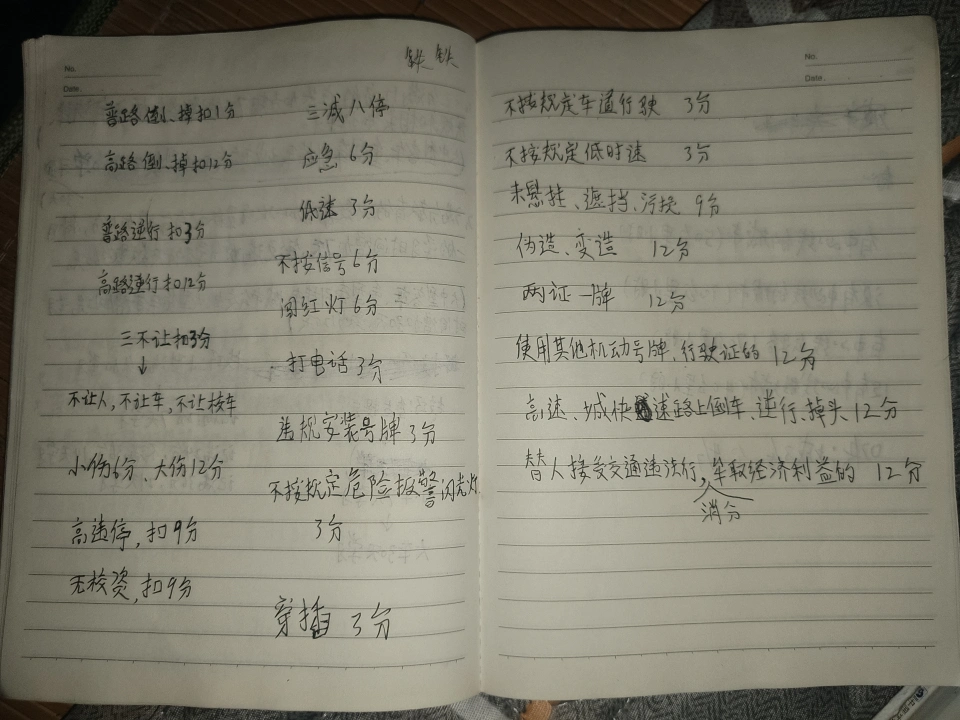 No.
Date.
普路倒、掉扣1分
高路倒、掉扣12分
普路逆行扣3分
高路逆行扣12分
三不让扣3分
↓
不让人,不让车,不让校车
小伤6分、大伤12分
高违停,扣9分
无校资,扣9分
三减八停
应急6分
低速3分
不按信号6分
闯红灯6分
打电话3分
违规安装号牌3分
不按规定危险报警闪光灯
3分
穿插3分
No.
Date.
不按规定车道行驶 3分
不按规定低时速 3分
未悬挂、遮挡、污损 9分
伪造、变造 12分
两证一牌 12分
使用其他机动号牌,行驶证的 12分
高速、城快速路上倒车、逆行、掉头12分
替人接受交通违法行,牟取经济利益的 12分
消分